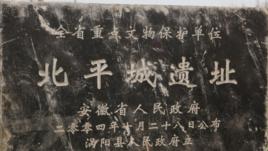 全省重点文物保护单位
北平城遗址
安徽省人民政府
二〇〇四年十月二十八日公布
涡阳县人民政府立